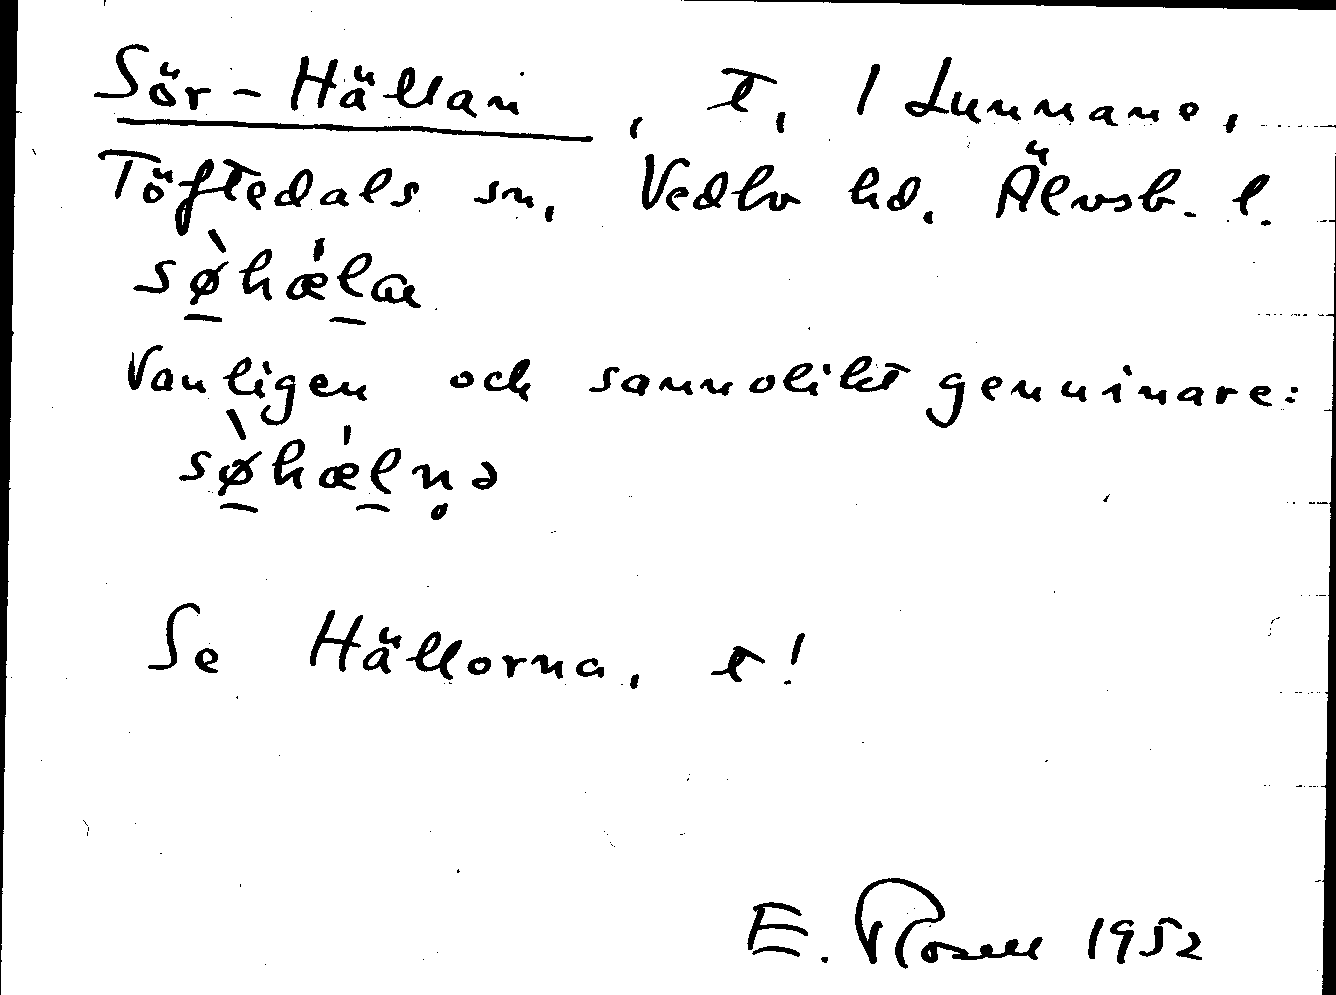 Sör-Hällan, t, 1 Lunnane,
Töftedals sn, Vedbo hd. Älvsb. l.
sø̱̀hǽḻa
Vanligen och sannolikt genuinare:
sø̱̀hǽḻn̥ə
Se Hällorna, t!
E. Rosell 1952